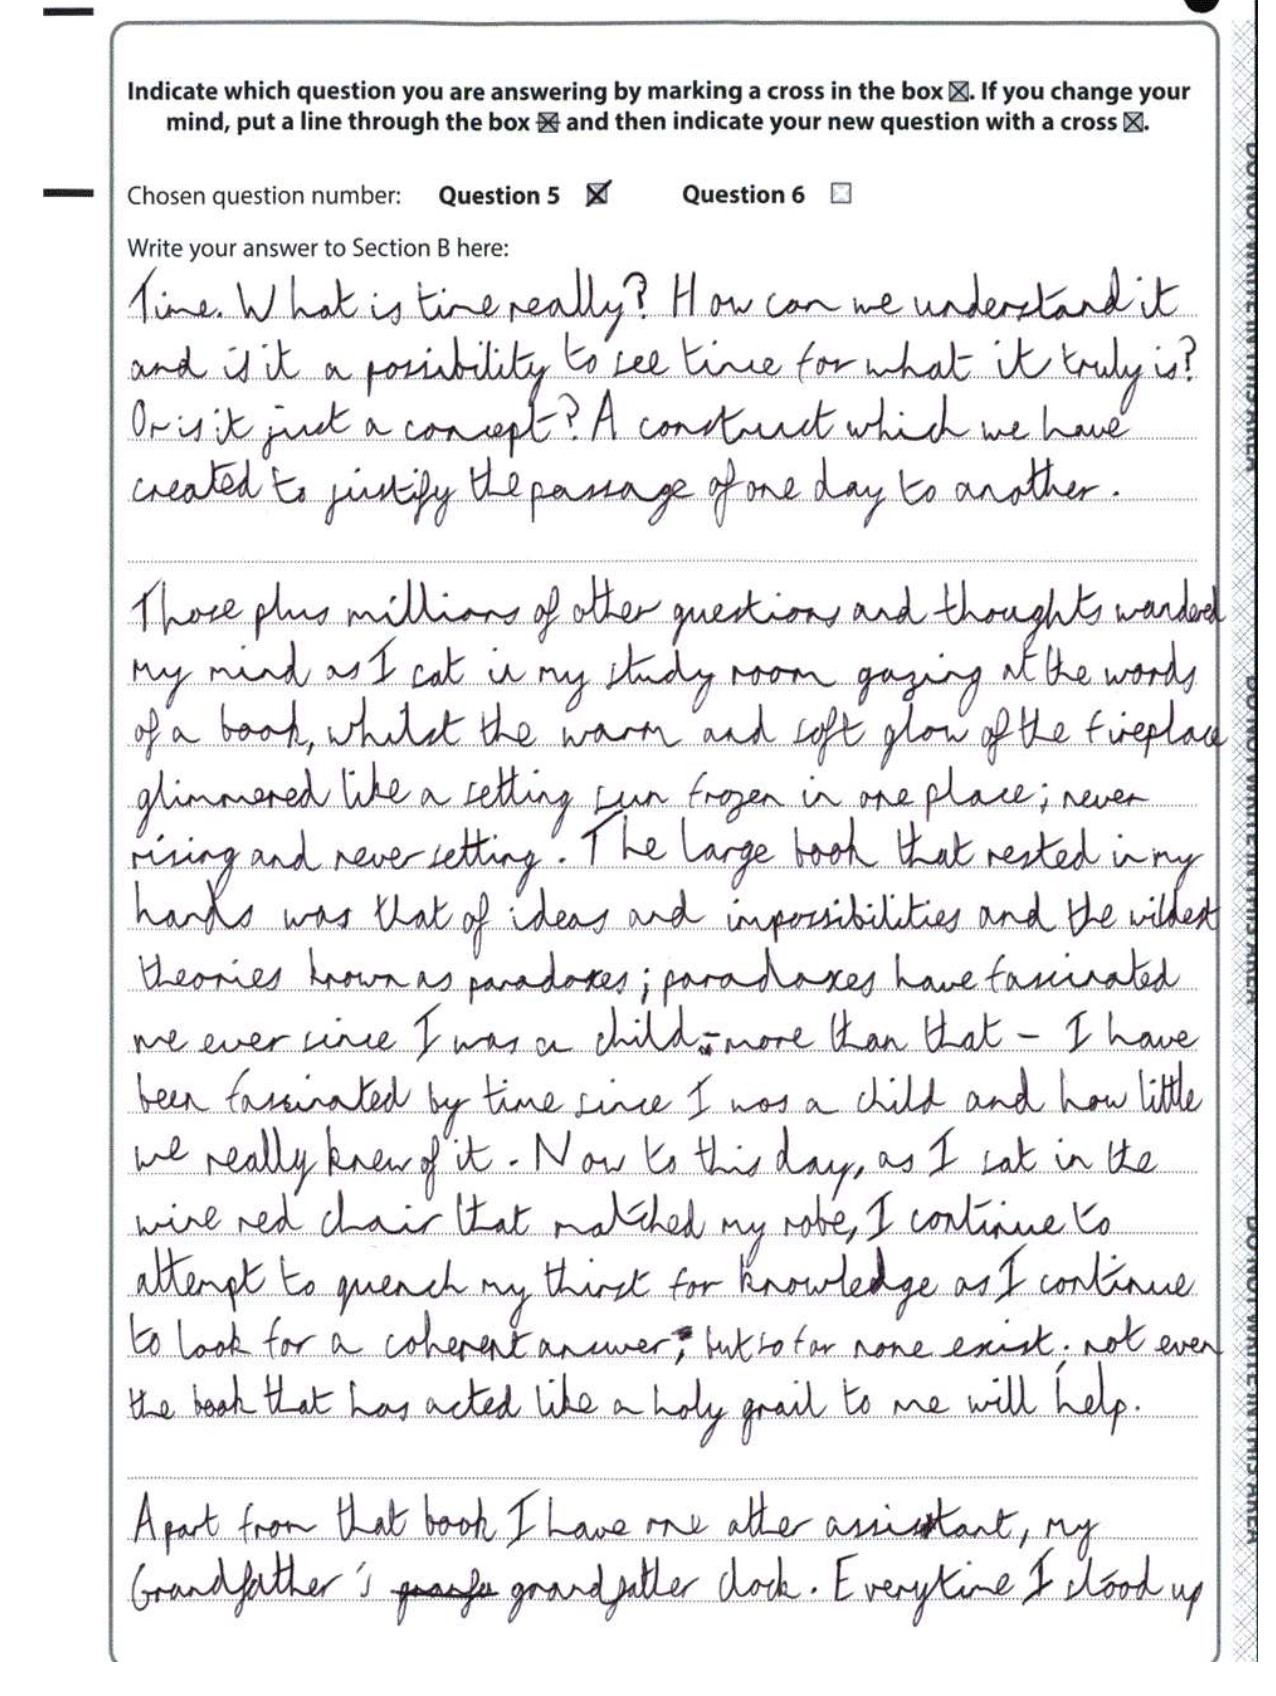 Indicate which question you are answering by marking a cross in the box ☒. If you change your
mind, put a line through the box ☒ and then indicate your new question with a cross ☒.
Chosen question number: Question 5 ☒ Question 6 ☐
Write your answer to Section B here:
Time. What is time really? How can we understand it
and is it a possibility to see time for what it truly is?
Or is it just a concept? A construct which we have
created to justify the passage of one day to another.
Those plus millions of other questions and thoughts wandered
my mind as I sat in my study room gazing at the words
of a book, whilst the warm and soft glow of the fireplace
glimmered like a setting sun frozen in one place; never
rising and never setting. The large book that rested in my
hands was that of ideas and impossibilities and the wildest
theories known as paradoxes; paradoxes have fascinated
me ever since I was a child - more than that - I have
been fascinated by time since I was a child and how little
we really knew of it. Now to this day, as I sat in the
wine red chair that matched my robe, I continue to
attempt to quench my thirst for knowledge as I continue
to look for a coherent answer; but so far none exist; not even
the book that has acted like a holy grail to me will help.
Apart from that book I have one other assistant, my
Grandfather's grandfather clock. Everytime I stood up
DO NOT WRITE IN THIS AREA
DO NOT WRITE IN THIS AREA
DO NOT WRITE IN THIS AREA